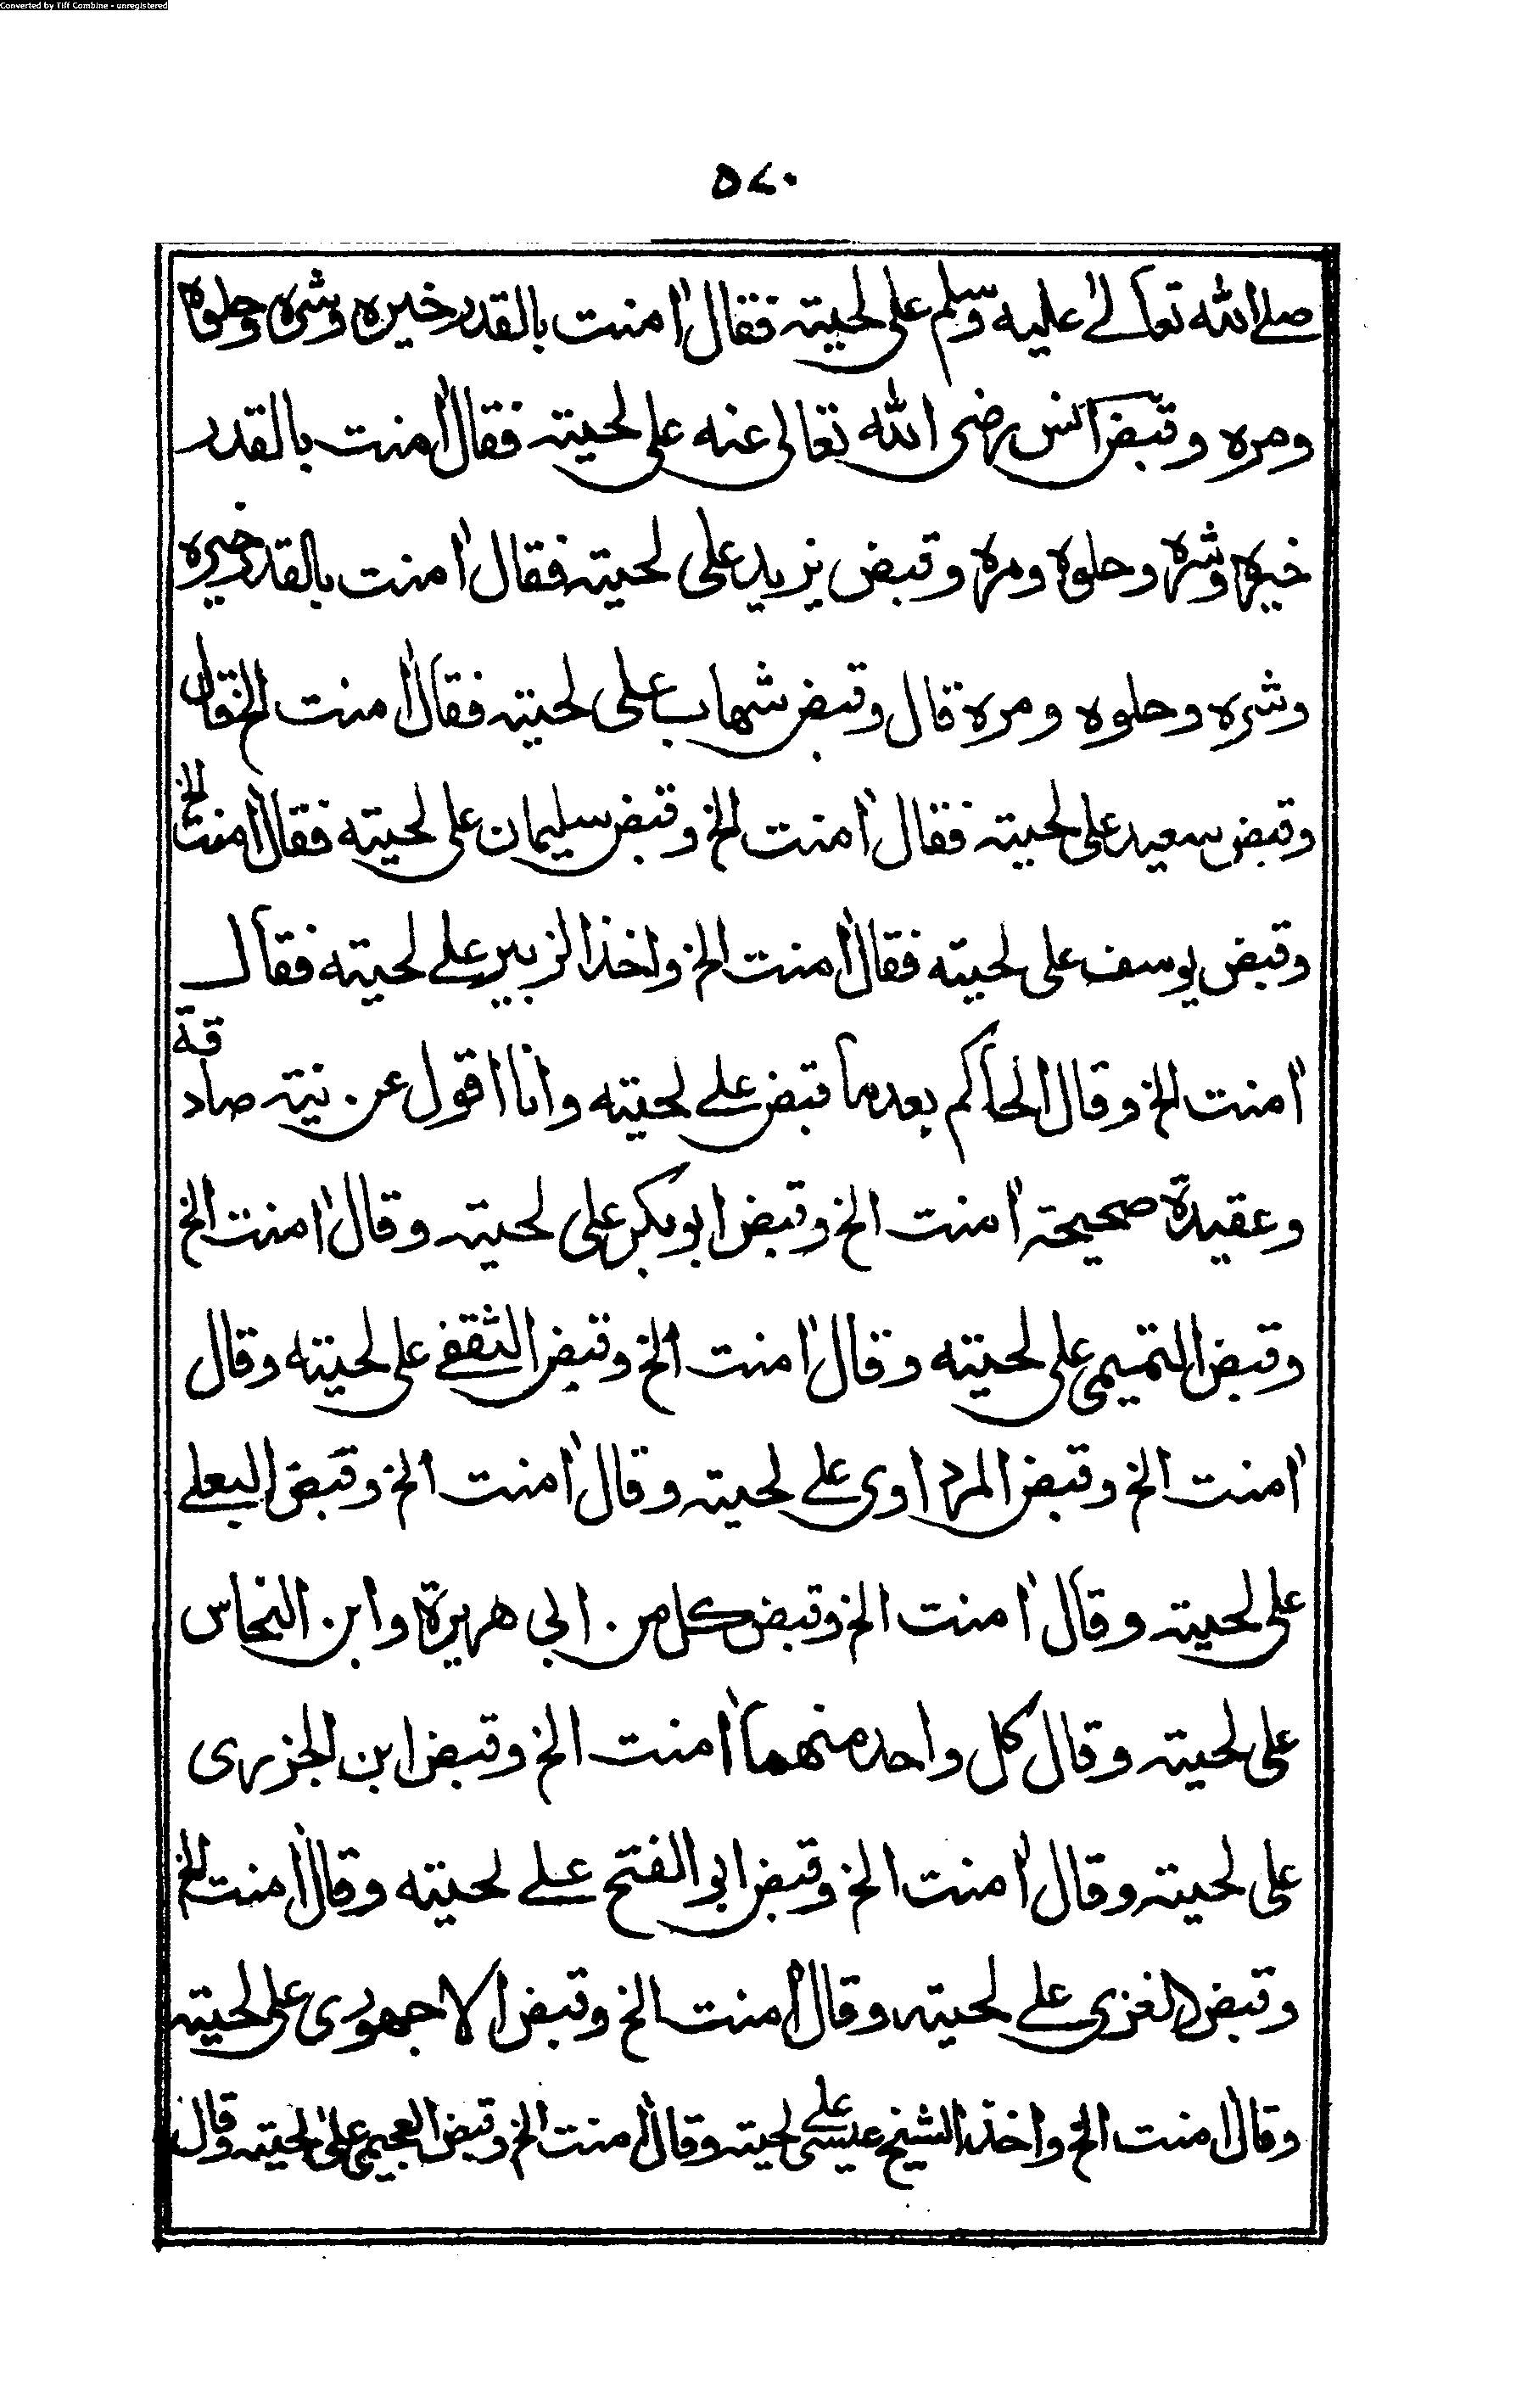 Converted by Tiff Combine - unregistered
٥٧٠
صلے اللہ تعالےٰ علیه وسلم علی لحیته فقال اٰمنت بالقدر خیره وشره وحلوه
ومره وقبض انس رضی اللہ تعالی عنه علی لحیته فقال اٰمنت بالقدر
خیره وشره وحلوه ومره وقبض یزید علی لحیته فقال اٰمنت بالقدر خیره
وشره وحلوه ومره قال وقبض شهاب علی لحیته فقال اٰمنت الخ قال
وقبض سعید علی لحیته فقال اٰمنت الخ وقبض سلیمان علی لحیته فقال اٰمنت الخ
وقبض یوسف علی لحیته فقال اٰمنت الخ واخذ الزبیر علے لحیته فقال
اٰمنت الخ وقال الحاکم بعد ما قبض علے لحیته وانا اقول عن نیة صادقة
وعقیدة صحیحة اٰمنت الخ وقبض ابوبکر علی لحیته وقال اٰمنت الخ
وقبض التمیمی علی لحیته وقال اٰمنت الخ وقبض الثقفے علی لحیته وقال
اٰمنت الخ وقبض المرداوی علے لحیته وقال اٰمنت الخ وقبض البعلے
علی لحیته وقال اٰمنت الخ وقبض کل من ابی هریرة وابن النحاس
علی لحیته وقال کل واحد منهما اٰمنت الخ وقبض ابن الجزری
علی لحیته وقال اٰمنت الخ وقبض ابو الفتح علے لحیته وقال اٰمنت الخ
وقبض الغزی علے لحیته وقال اٰمنت الخ وقبض الاجهوری علی لحیته
وقال اٰمنت الخ واخذ الشیخ عیسی علے لحیته وقال اٰمنت الخ وقبض العجیمی علیٰ لحیته وقال